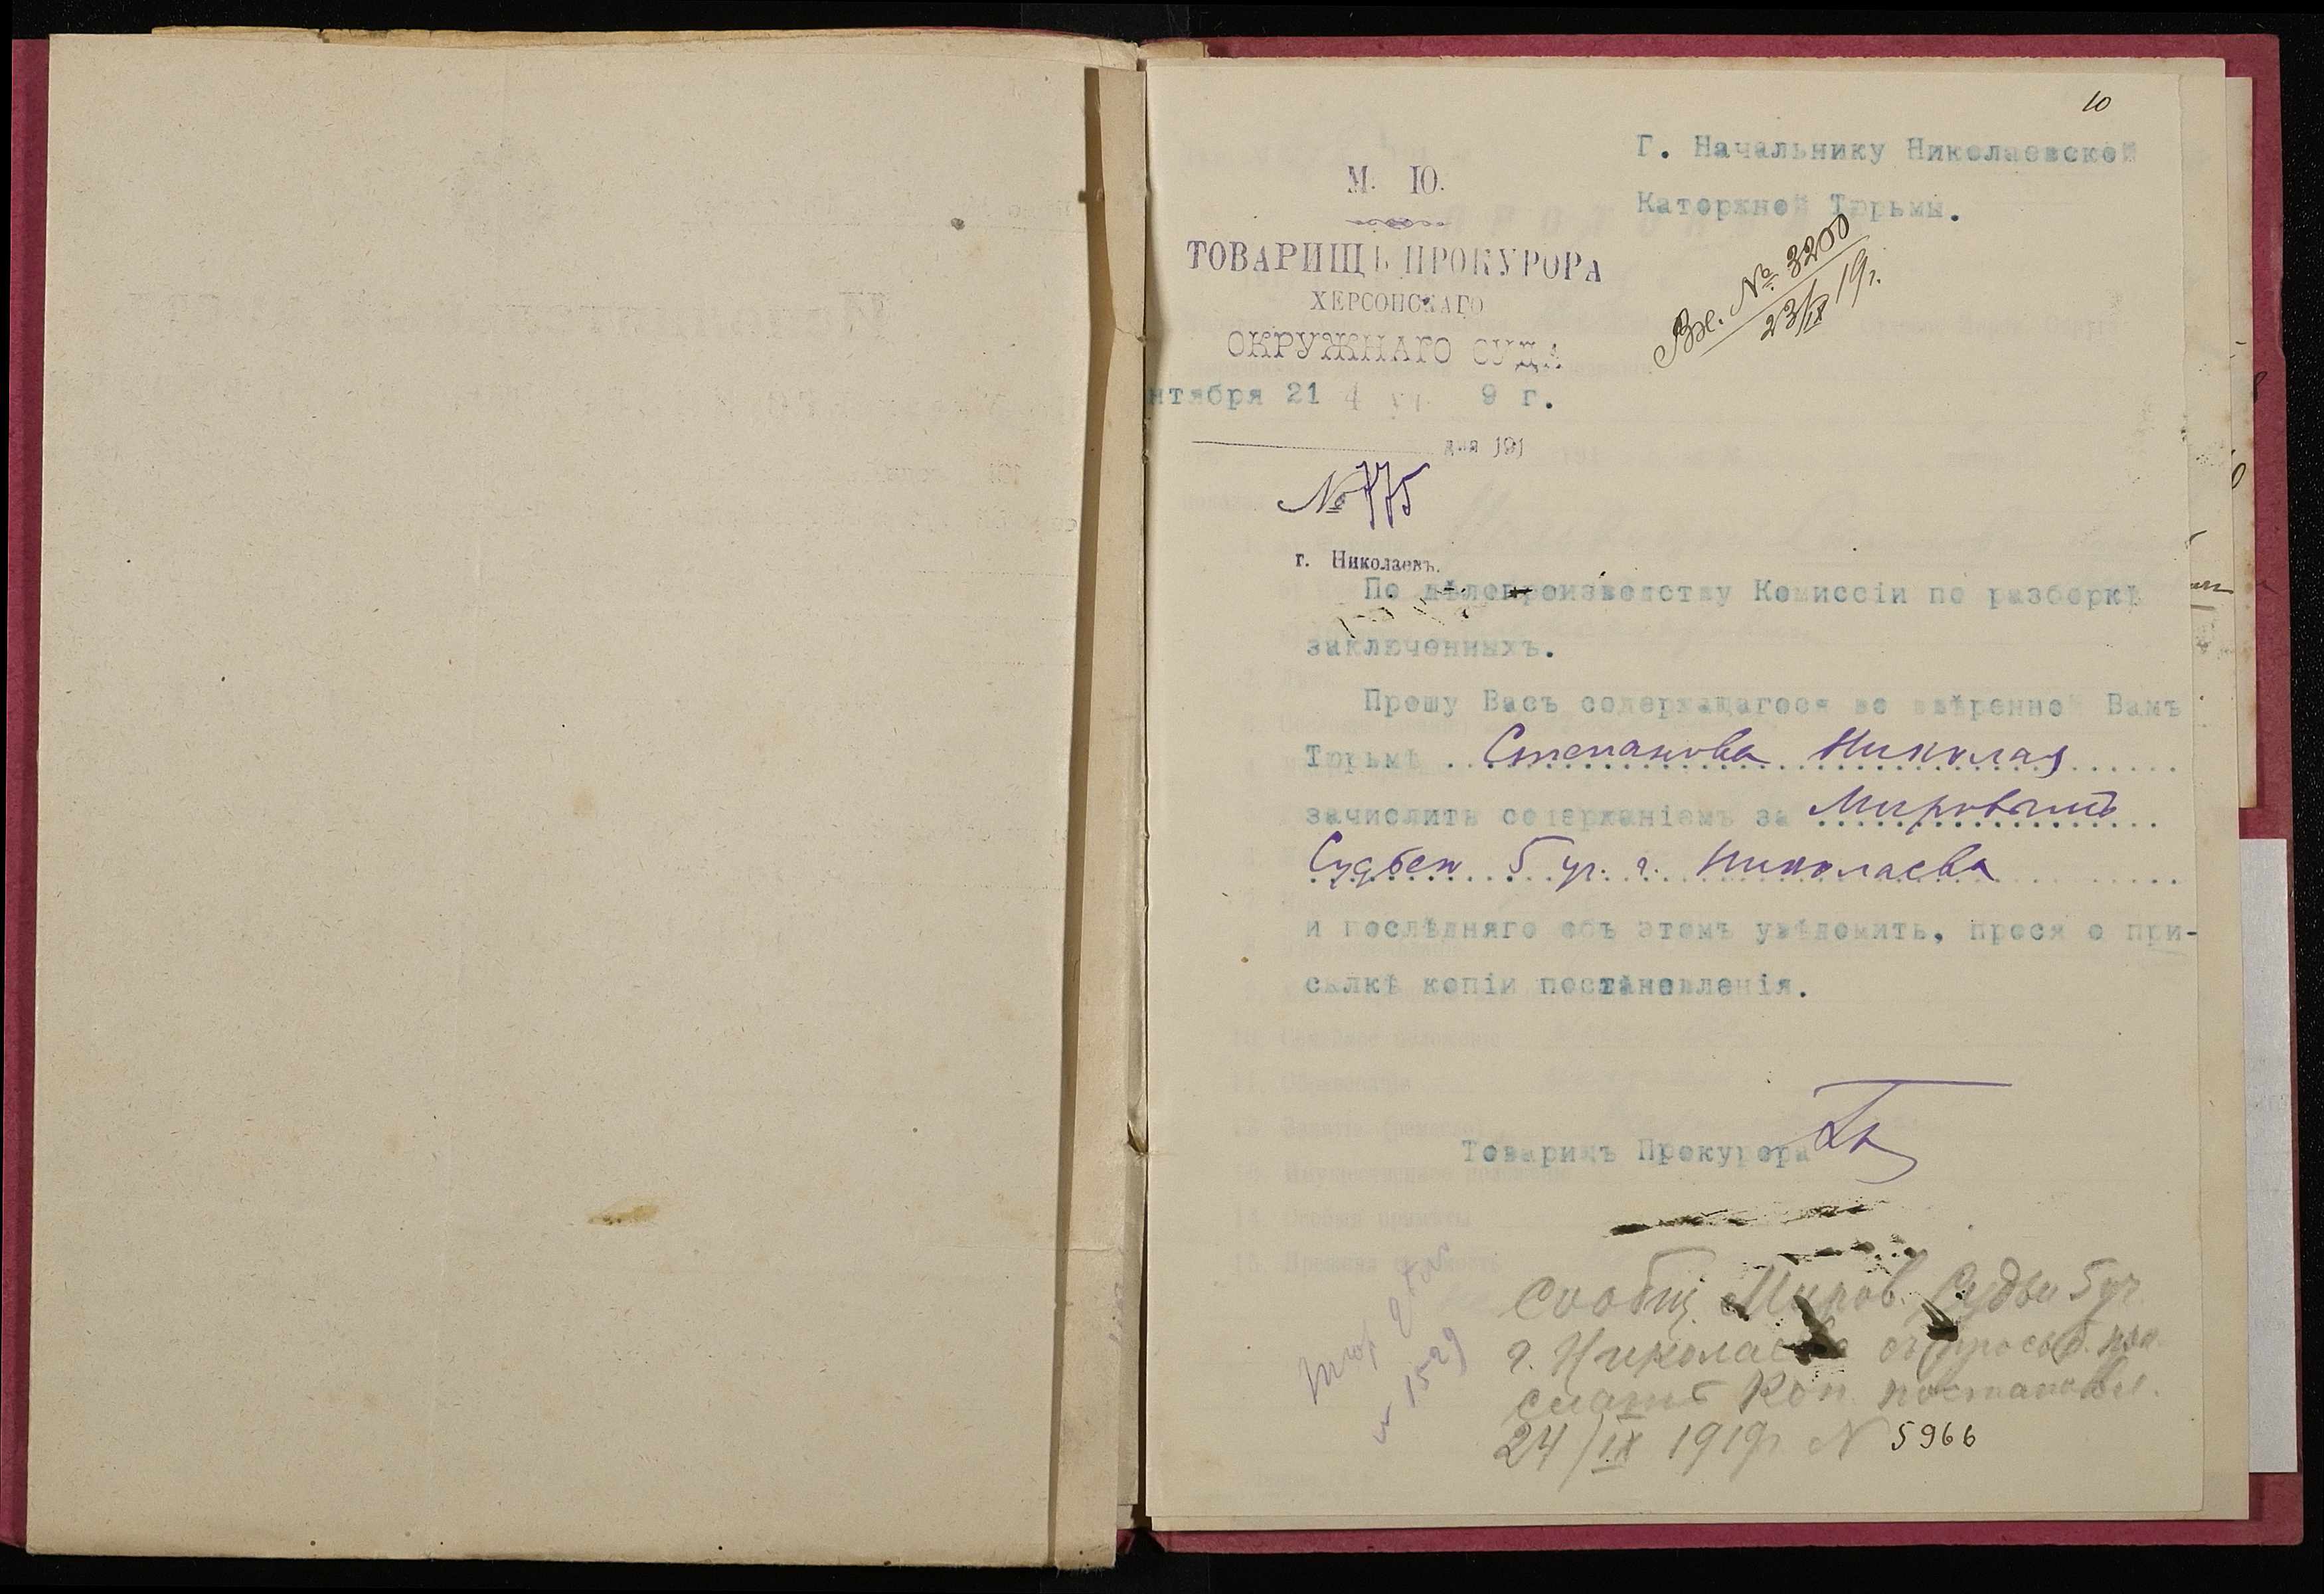 10
Г. Начальнику Николаевской
Каторжной Тюрьмы.
М. Ю.
ТОВАРИЩЪ ПРОКУРОРА
ХЕРСОНСКАГО
ОКРУЖНАГО СУДА
Вх. № 3200
23/IX 19г.
нтября 21 9 г.
дня 191
№ 775
г. Николаевъ.
По дѣлопроизводству Комиссіи по разборкѣ
заключенныхъ.
Прошу Васъ содержащагося во ввѣренной Вамъ
Тюрьмѣ Степанова Николая
зачислить содержаніемъ за Мировымъ
Судьей 5 уч. г. Николаева
и послѣдняго объ этомъ увѣдомить, прося о при-
сылкѣ копіи постановленія.
Товарищъ Прокурора
Сообщ. Миров. Судьи 5 уч
г. Николаева съ просьб.
коп. постановл.
24/IX 1919г N 5966